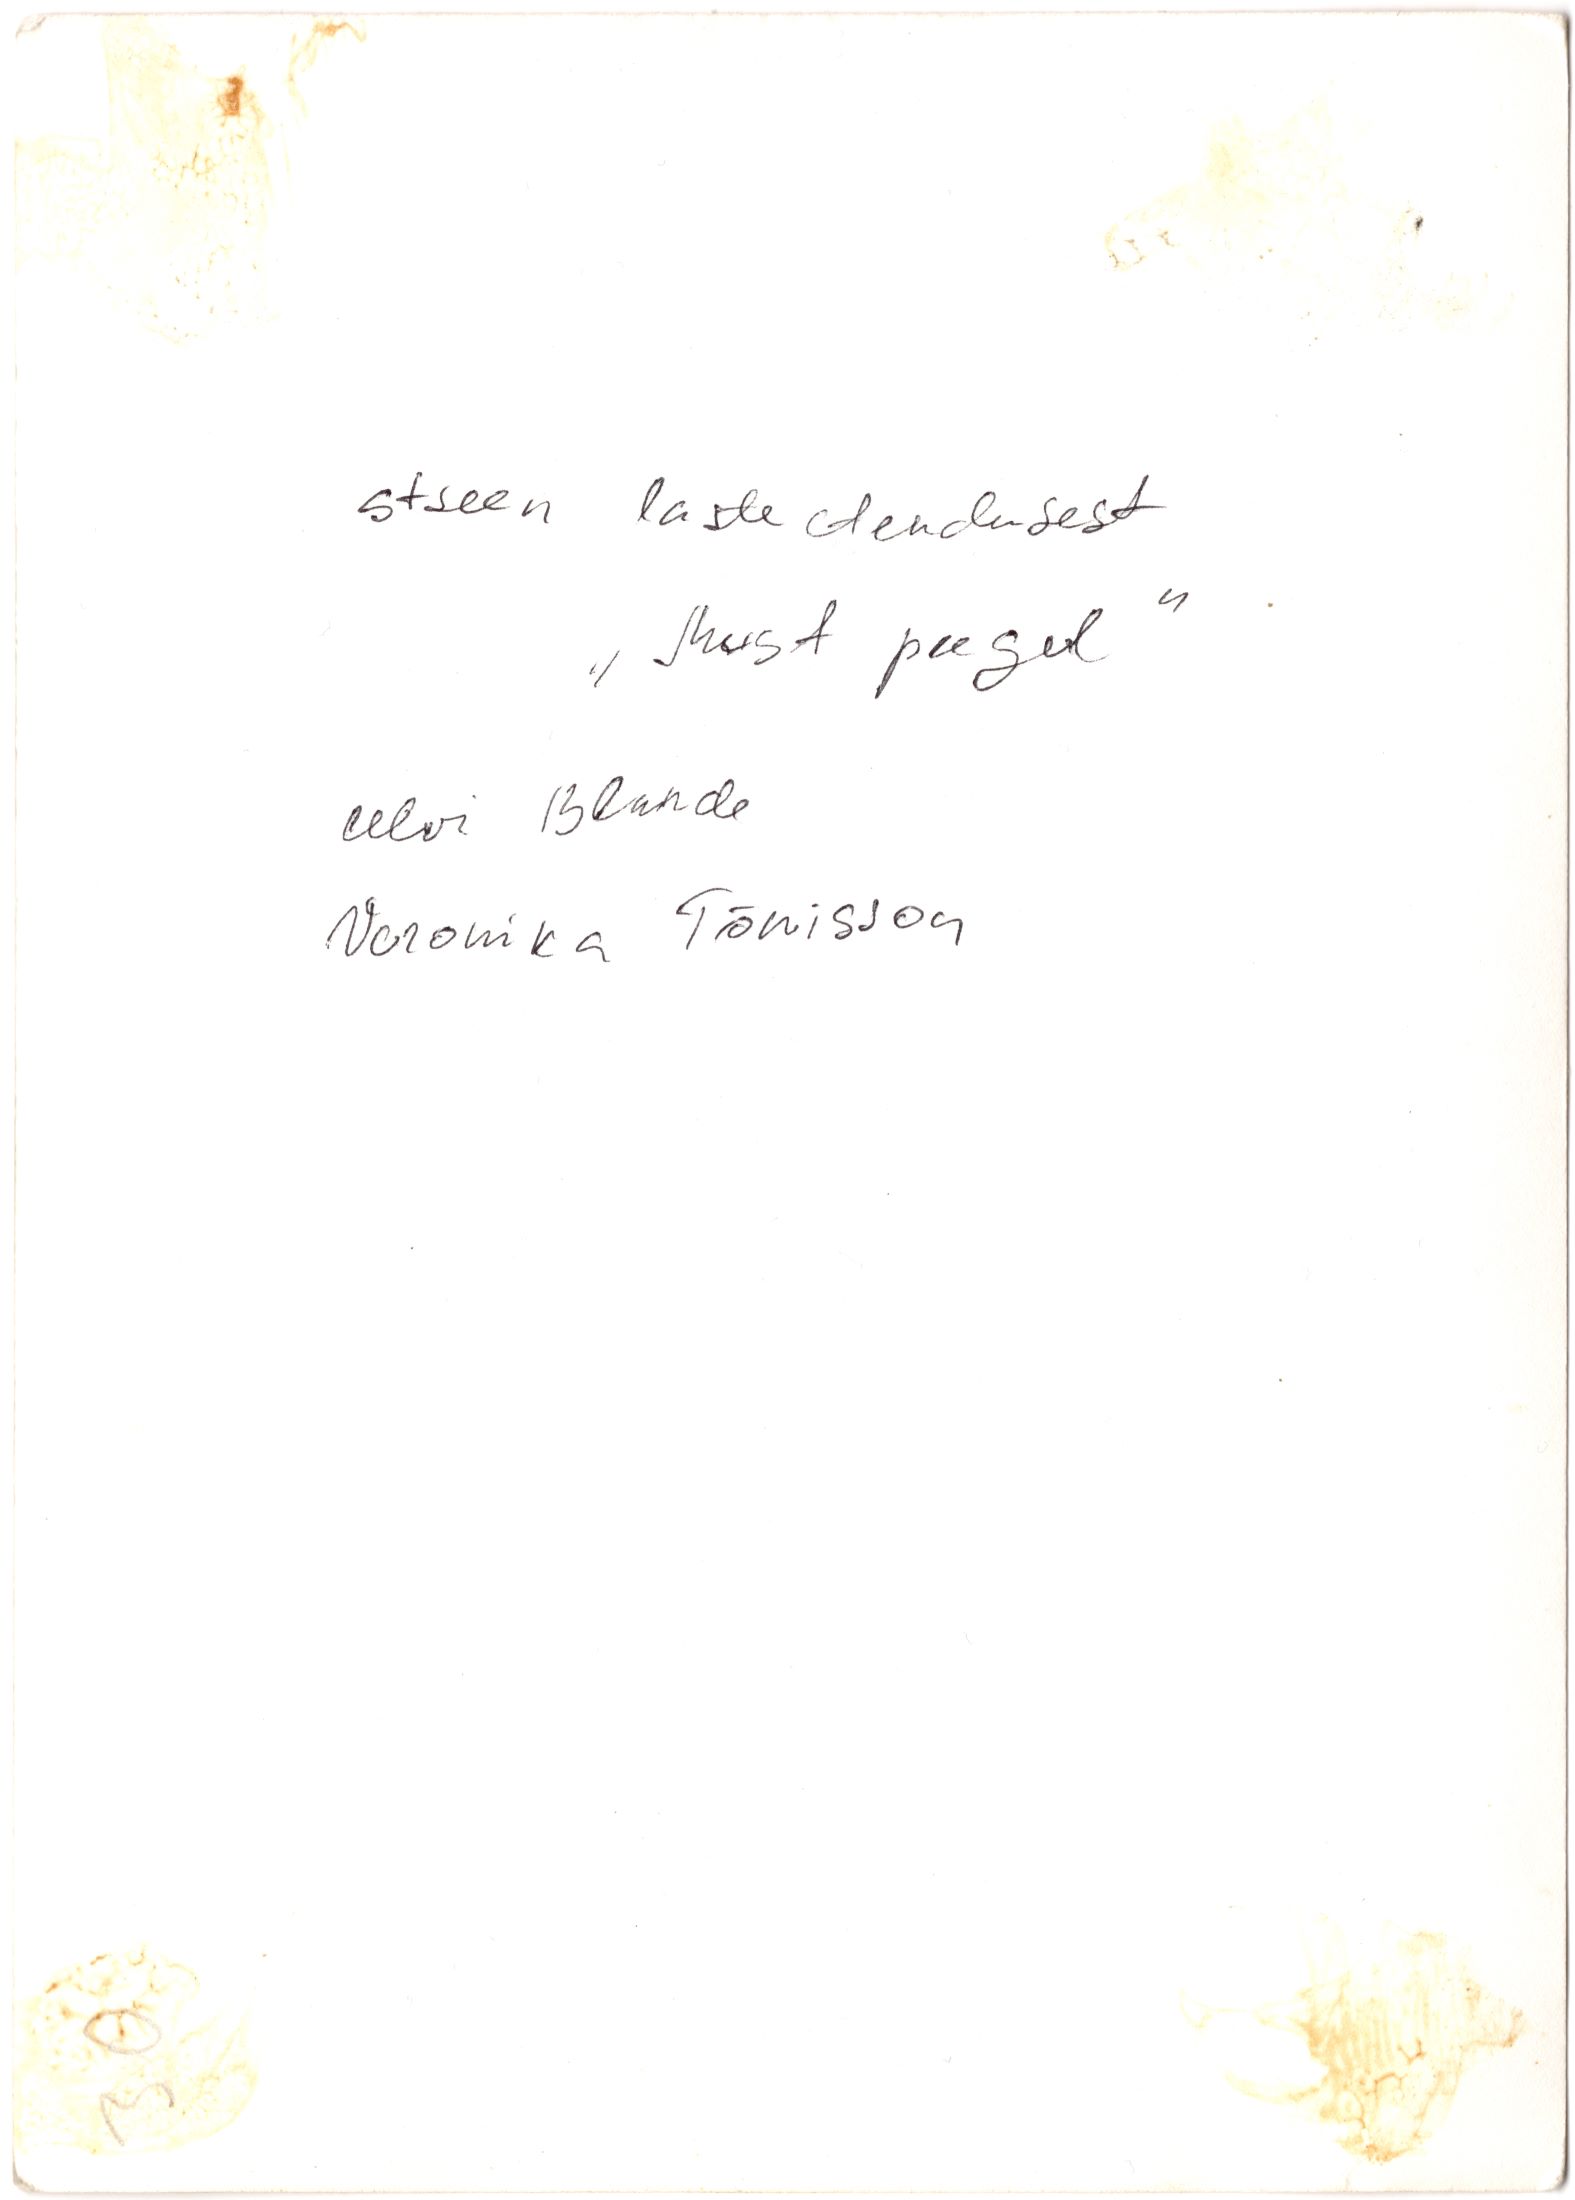 stseen laste etendusest
„Must peegel"
Ulvi Blande
Veronika Tõnisson